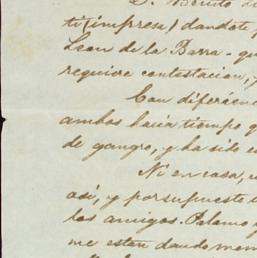 D. Benito
ti (impresa) dandote
Leon de la Barra - que
requiere contestacion,
Con diferenc
ambos hacia tiempo q
de gangro, y ha sido e
Ni en casa,
asi, y por supuesto
los amigos. Palamo y
me esten dando mem